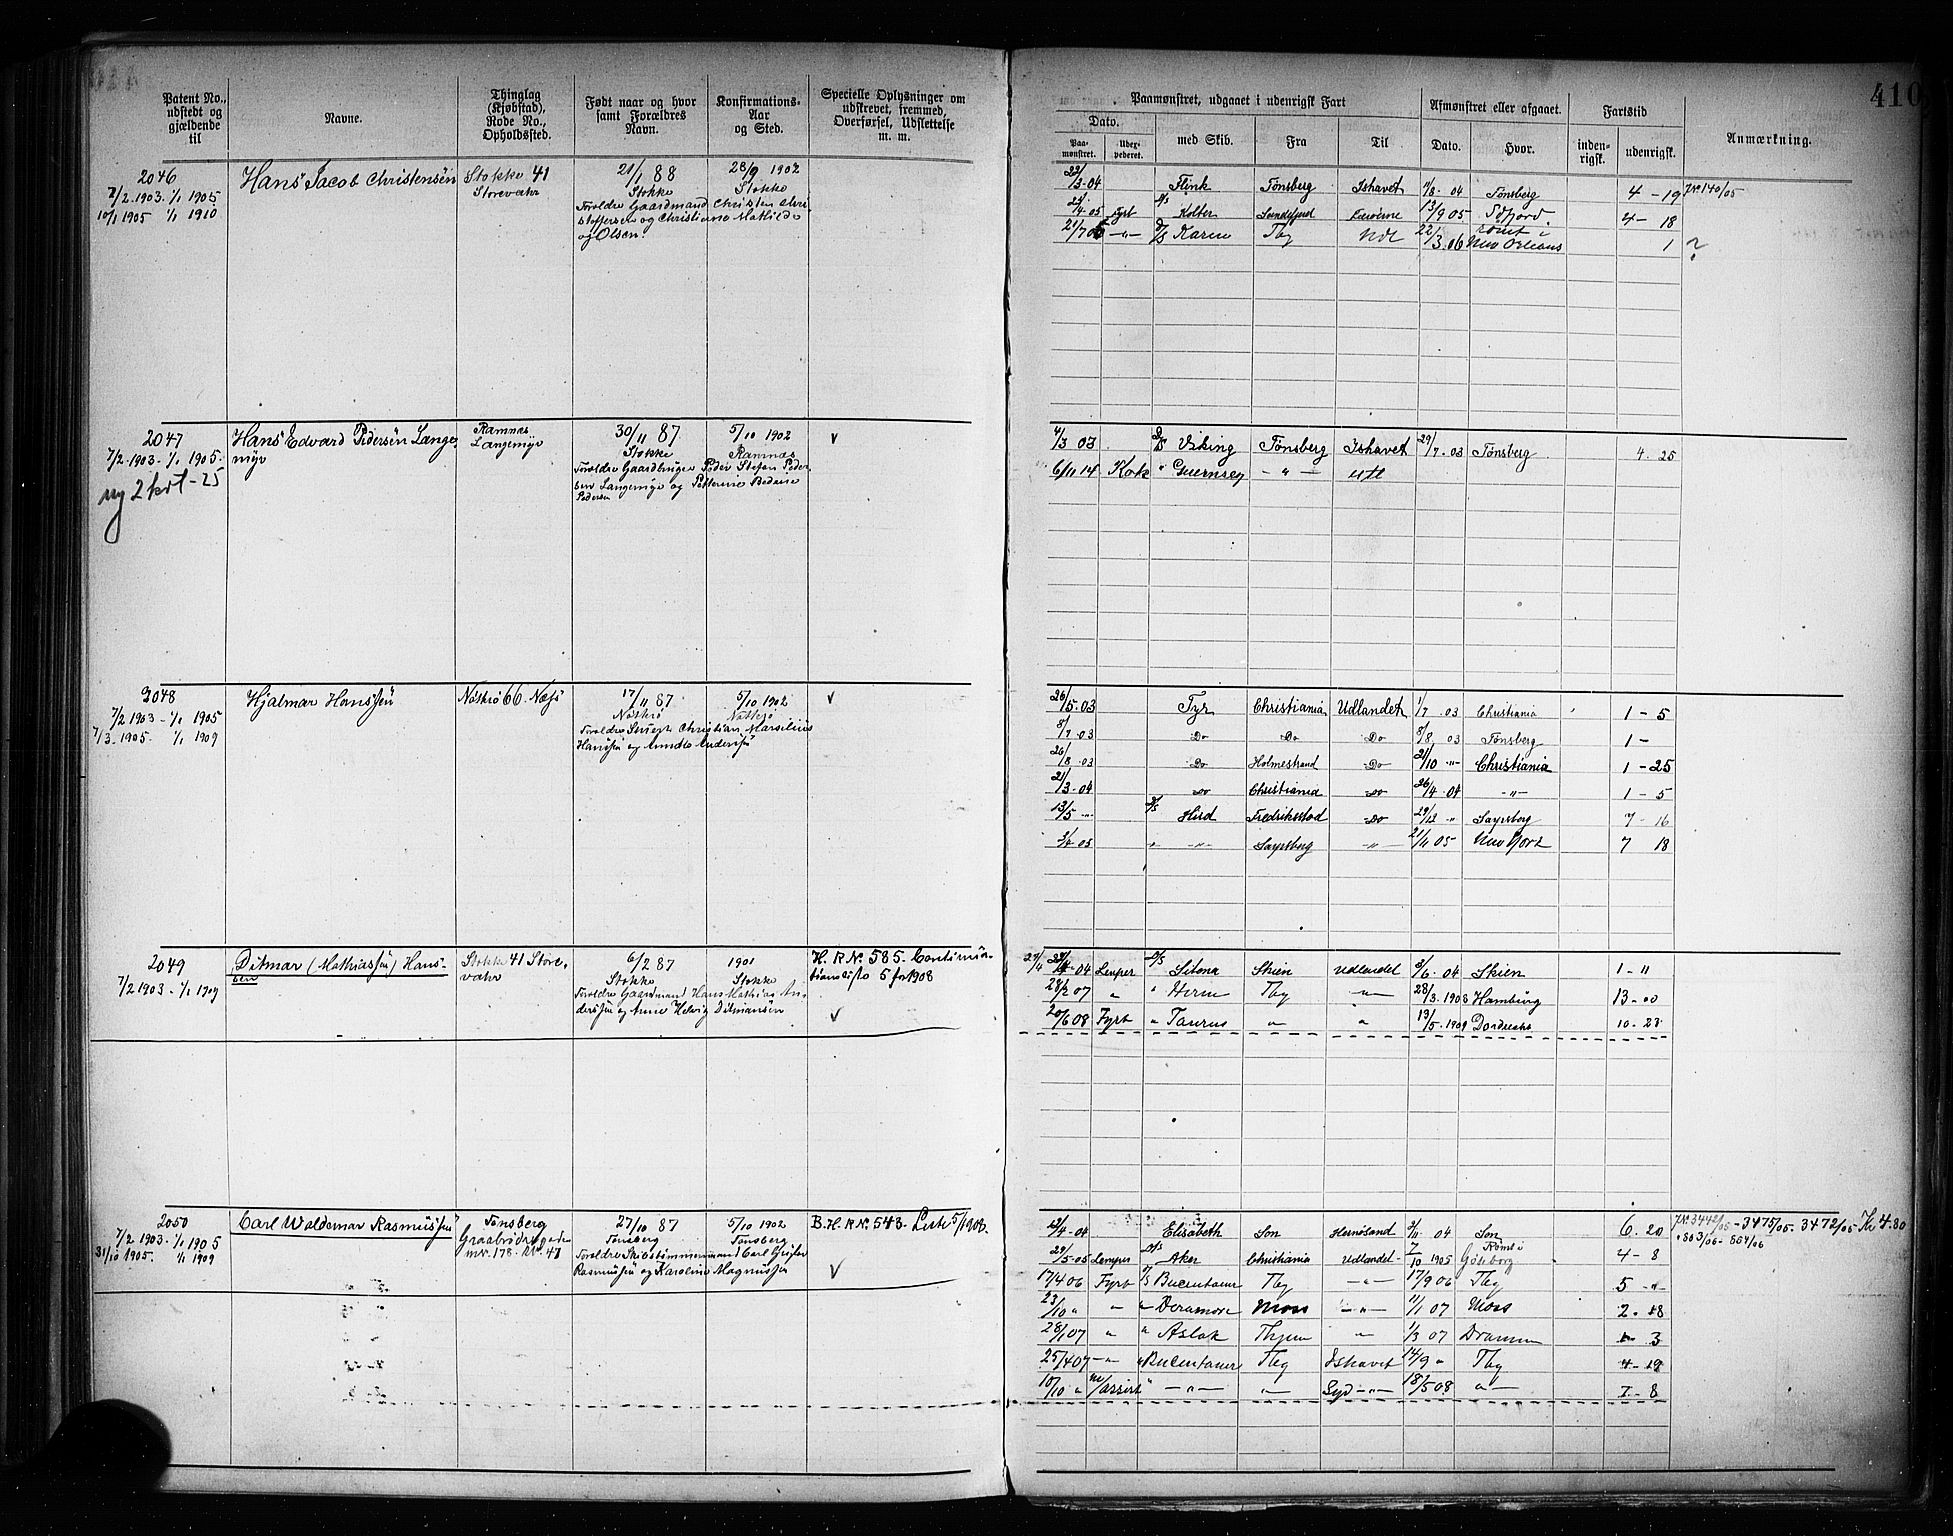 410
Patent No., udstedt og gjældende til
Navne.
Thinglag (Kjøbstad), Rode No., Opholdssted.
Født naar og hvor samt Forældres Navn.
Konfirmations- Aar og Sted.
Specielle Oplysninger om udskrevet, fremmed, Overførsel, Udslettelse m. m.
Paamønstret, udgaaet i udenrigsk Fart
Afmønstret eller afgaaet.
Fartstid
Anmærkning.
Dato.
Paa- mønstret.
med Skib.
Fra
Til
Dato.
Hvor.
inden- rigsk.
udenrigsk.
2046
7/2 1903. 1/1 1905
10/1 1905 1/1 1910
Hans Jacob Christensen
Stokke 41
Storevahr
21/1 88
Stokke
28/9 1902
Stokke
Foreldre Gaardmand Christen Chri
stoffersen og Christiane Mathilde
og Olsen.
23/3-04 Flink Tønsberg Ishavet 04 Tønsberg 4-19 140/05
4-05 Fyrb Kolter Sandefjord 13/9 05 4-18
21/7 05 -"- D/S Karen Tbg Udl 22/3.06 rømt i New Orleans 1 ?
2047
7/2 1903. 1/1 1905.
ny 2 krt - 25
Hans Edvard Pedersen Lange
myr
Ramnæs
Langemyr
30/11 87
Stokke
5/10 1902
Ramnæs
v
Foreldre Gaardbruger Peder Stefen Peder
sen Langemyr og Petterine Bedine
Pedersen
4/3 03 D/S Viking Tønsberg Ishavet 29/7-03 Tønsberg 4-25
6/11 14 Kok " Guernsey -"- Utl
2048
7/2 1903 - 1/1 1905
7/3-1905. 1/1 1909
Hjalmar Hanssen
Nøtterø 66 Næs
17/11 87
Nøtterø
5/10 1902
Nøtterø
v
Foreldre Christian Marselius
Hanssen og Anderssen
26/5-03 Tyr Christiania Udlandet 1/7 03 Christiania 1-5
8/7 03 Do Do Do 8/8 03 Tønsberg 1-
26/8-03 Do Holmestrand Do 21/10 -"- Christiania 1-25
21/3-04 Do Christiania Do 26/4.04 -"- 1-5
13/5 -"- D/S Hird Fredriksstad Do 29/12 " Sarpsborg 7-16
05 " -"- Sarpsborg -"- 21/11 05 New York 7 18
2049
7/2 1903 - 1/1 1909
Ditmar (Mathiassen) Hans-
sen
Stokke 41 Store-
vahr
6/2 87
Stokke
1901
Stokke
H. R No. 585. Continua-
tionsliste 5 for 1908
v
Foreldre Gaardmand Hans Mathias An-
dersen og Anne Helvig Ditmansen
04 Lemper D/S Sitona Skien Udlandet 3/6-04 Skien 1-"
28/2 07 " " Herm Tbg -"- 28/3.1908 Hamburg 13-00
20/6 08 Fyrb " Taurus " " 13/5-1909 Dordrecht 10-23
2050
7/2 1903 - 1/1 1905
31/10 1905. 1/1 1909
Carl Waldemar Rasmussen
Tønsberg
Graabrødregaden
27/10 87
Tønsberg
5/10 1902
Tønsberg
B. H R No. 543. Liste 5/1908.
v
Foreldre Skibstømmermand Carl Gustav
Rasmussen og Karoline Magnussen
12/4-04 Elisabeth Son Hernøsand 3/11 04 Son 6.20 3442/05 - 3475/05. 3472/05 Kr 4.80
803/06 - 804/06
29/5-05 Lemper D/S Aker Christiania Udlandet 7/10 1905 Rømt i Göteborg 4-8
17/4 06 Fyrb D/S Bucentaur Tbg -"- 17/9 06 Tbg 5 "
23/10 " " " Deramore Moss -"- 11/1 07 Moss 2-18
28/1 07 " " Aslak Thjem " 1/3 07 Drammen 3
25/4 07 -"- " Bucentaur Tbg Ishavet 14/9 " Tbg 4-19
10/10 " m/assist " -"- -"- Syd -"- 18/5 08 -"- 7-8